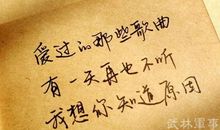 爱过的那些歌曲
有一天再也不听
我想你知道原因
武林軍事